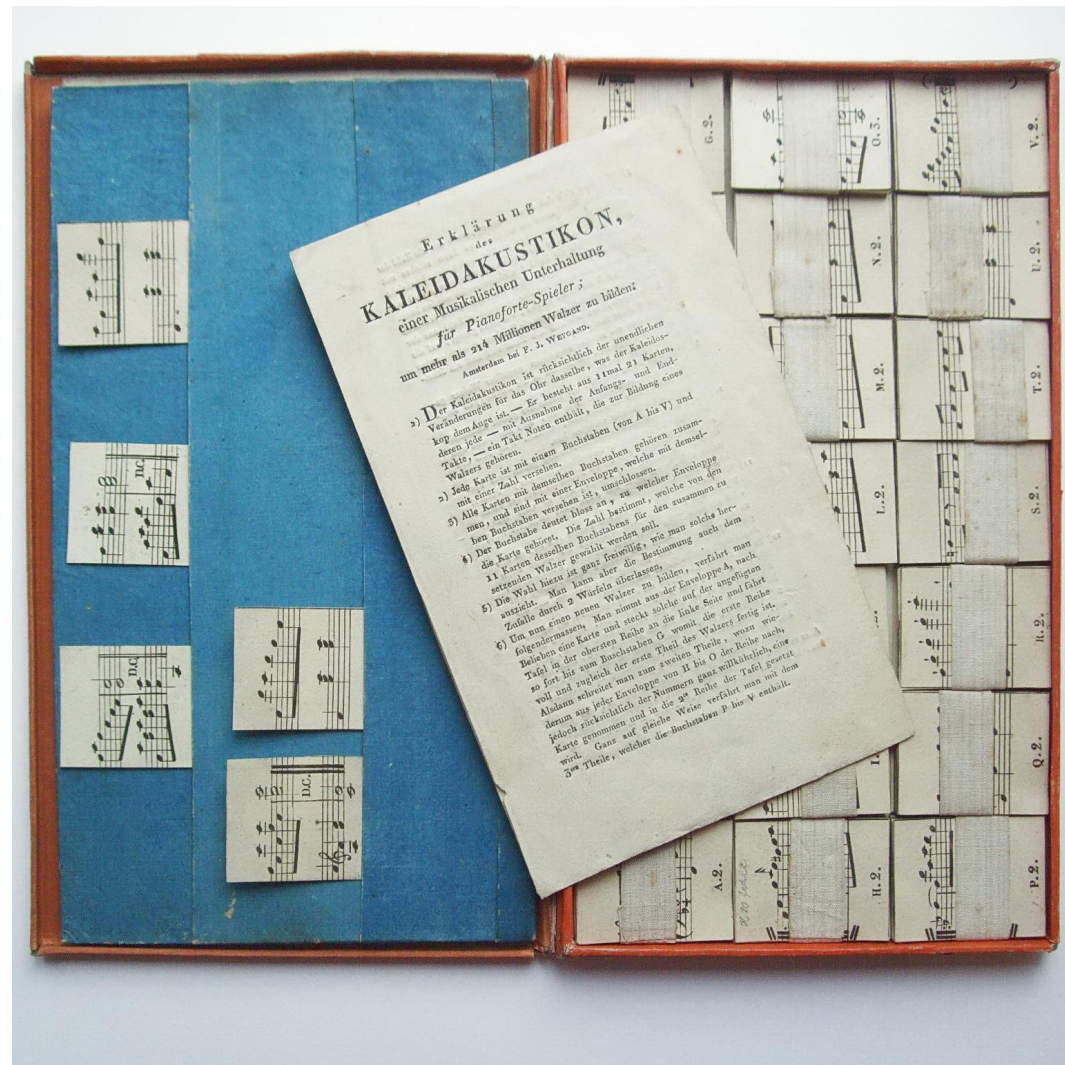 Erklärung
des
KALEIDAKUSTIKON,
einer Musikalischen Unterhaltung
für Pianoforte-Spieler;
um mehr als 214 Millionen Walzer zu bilden:
Amsterdam bei F. J. WEYGAND.
1) Der Kaleidakustikon ist rücksichtlich der unendlichen
Veränderungen für das Ohr dasselbe, was der Kaleidos-
kop dem Auge ist. — Er besteht aus 11mal 21 Karten,
deren jede — mit Ausnahme der Anfangs- und End-
Takte, — ein Takt Noten enthält, die zur Bildung eines
Walzers gehören.
2) Jede Karte ist mit einem Buchstaben (von A bis V) und
mit einer Zahl versehen.
3) Alle Karten mit demselben Buchstaben gehören zusam-
men, und sind mit einer Enveloppe, welche mit demsel-
ben Buchstaben versehen ist, umschlossen.
4) Der Buchstabe deutet bloss an, zu welcher Enveloppe
die Karte gehöret. Die Zahl bestimmt, welche von den
11 Karten desselben Buchstabens für den zusammen zu
setzenden Walzer gewählt werden soll.
5) Die Wahl hiezu ist ganz freiwillig, wie man solche her-
auszieht. Man kann aber die Bestimmung auch dem
Zufalle durch 2 Würfeln überlassen,
6) Um nun einen neuen Walzer zu bilden, verfährt man
folgendermassen, Man nimmt aus der Enveloppe A, nach
Belieben eine Karte und steckt solche auf der angefügten
Tafel in der obersten Reihe an die linke Seite und fährt
so fort bis zum Buschstaben G womit die erste Reihe
voll und zugleich der erste Theil des Walzers fertig ist.
Alsdann schreitet man zum zweiten Theile, wozu wie-
derum aus jeder Enveloppe von H bis O der Reihe nach,
jedoch rücksichtlich der Nummern ganz willkührlich, eine
Karte genommen und in die 2te Reihe der Tafel gesetzt
wird. Ganz auf gleiche Weise verfährt man mit dem
3ten Theile, welcher die Buchstaben P bis V enthält.
D.C.
D.C.
D.C.
G.2.
O.3.
V.2.
N.2.
U.2.
M.2.
T.2.
L.2.
S.2.
R.2.
Q.2.
A.2.
H.2.
P.2.